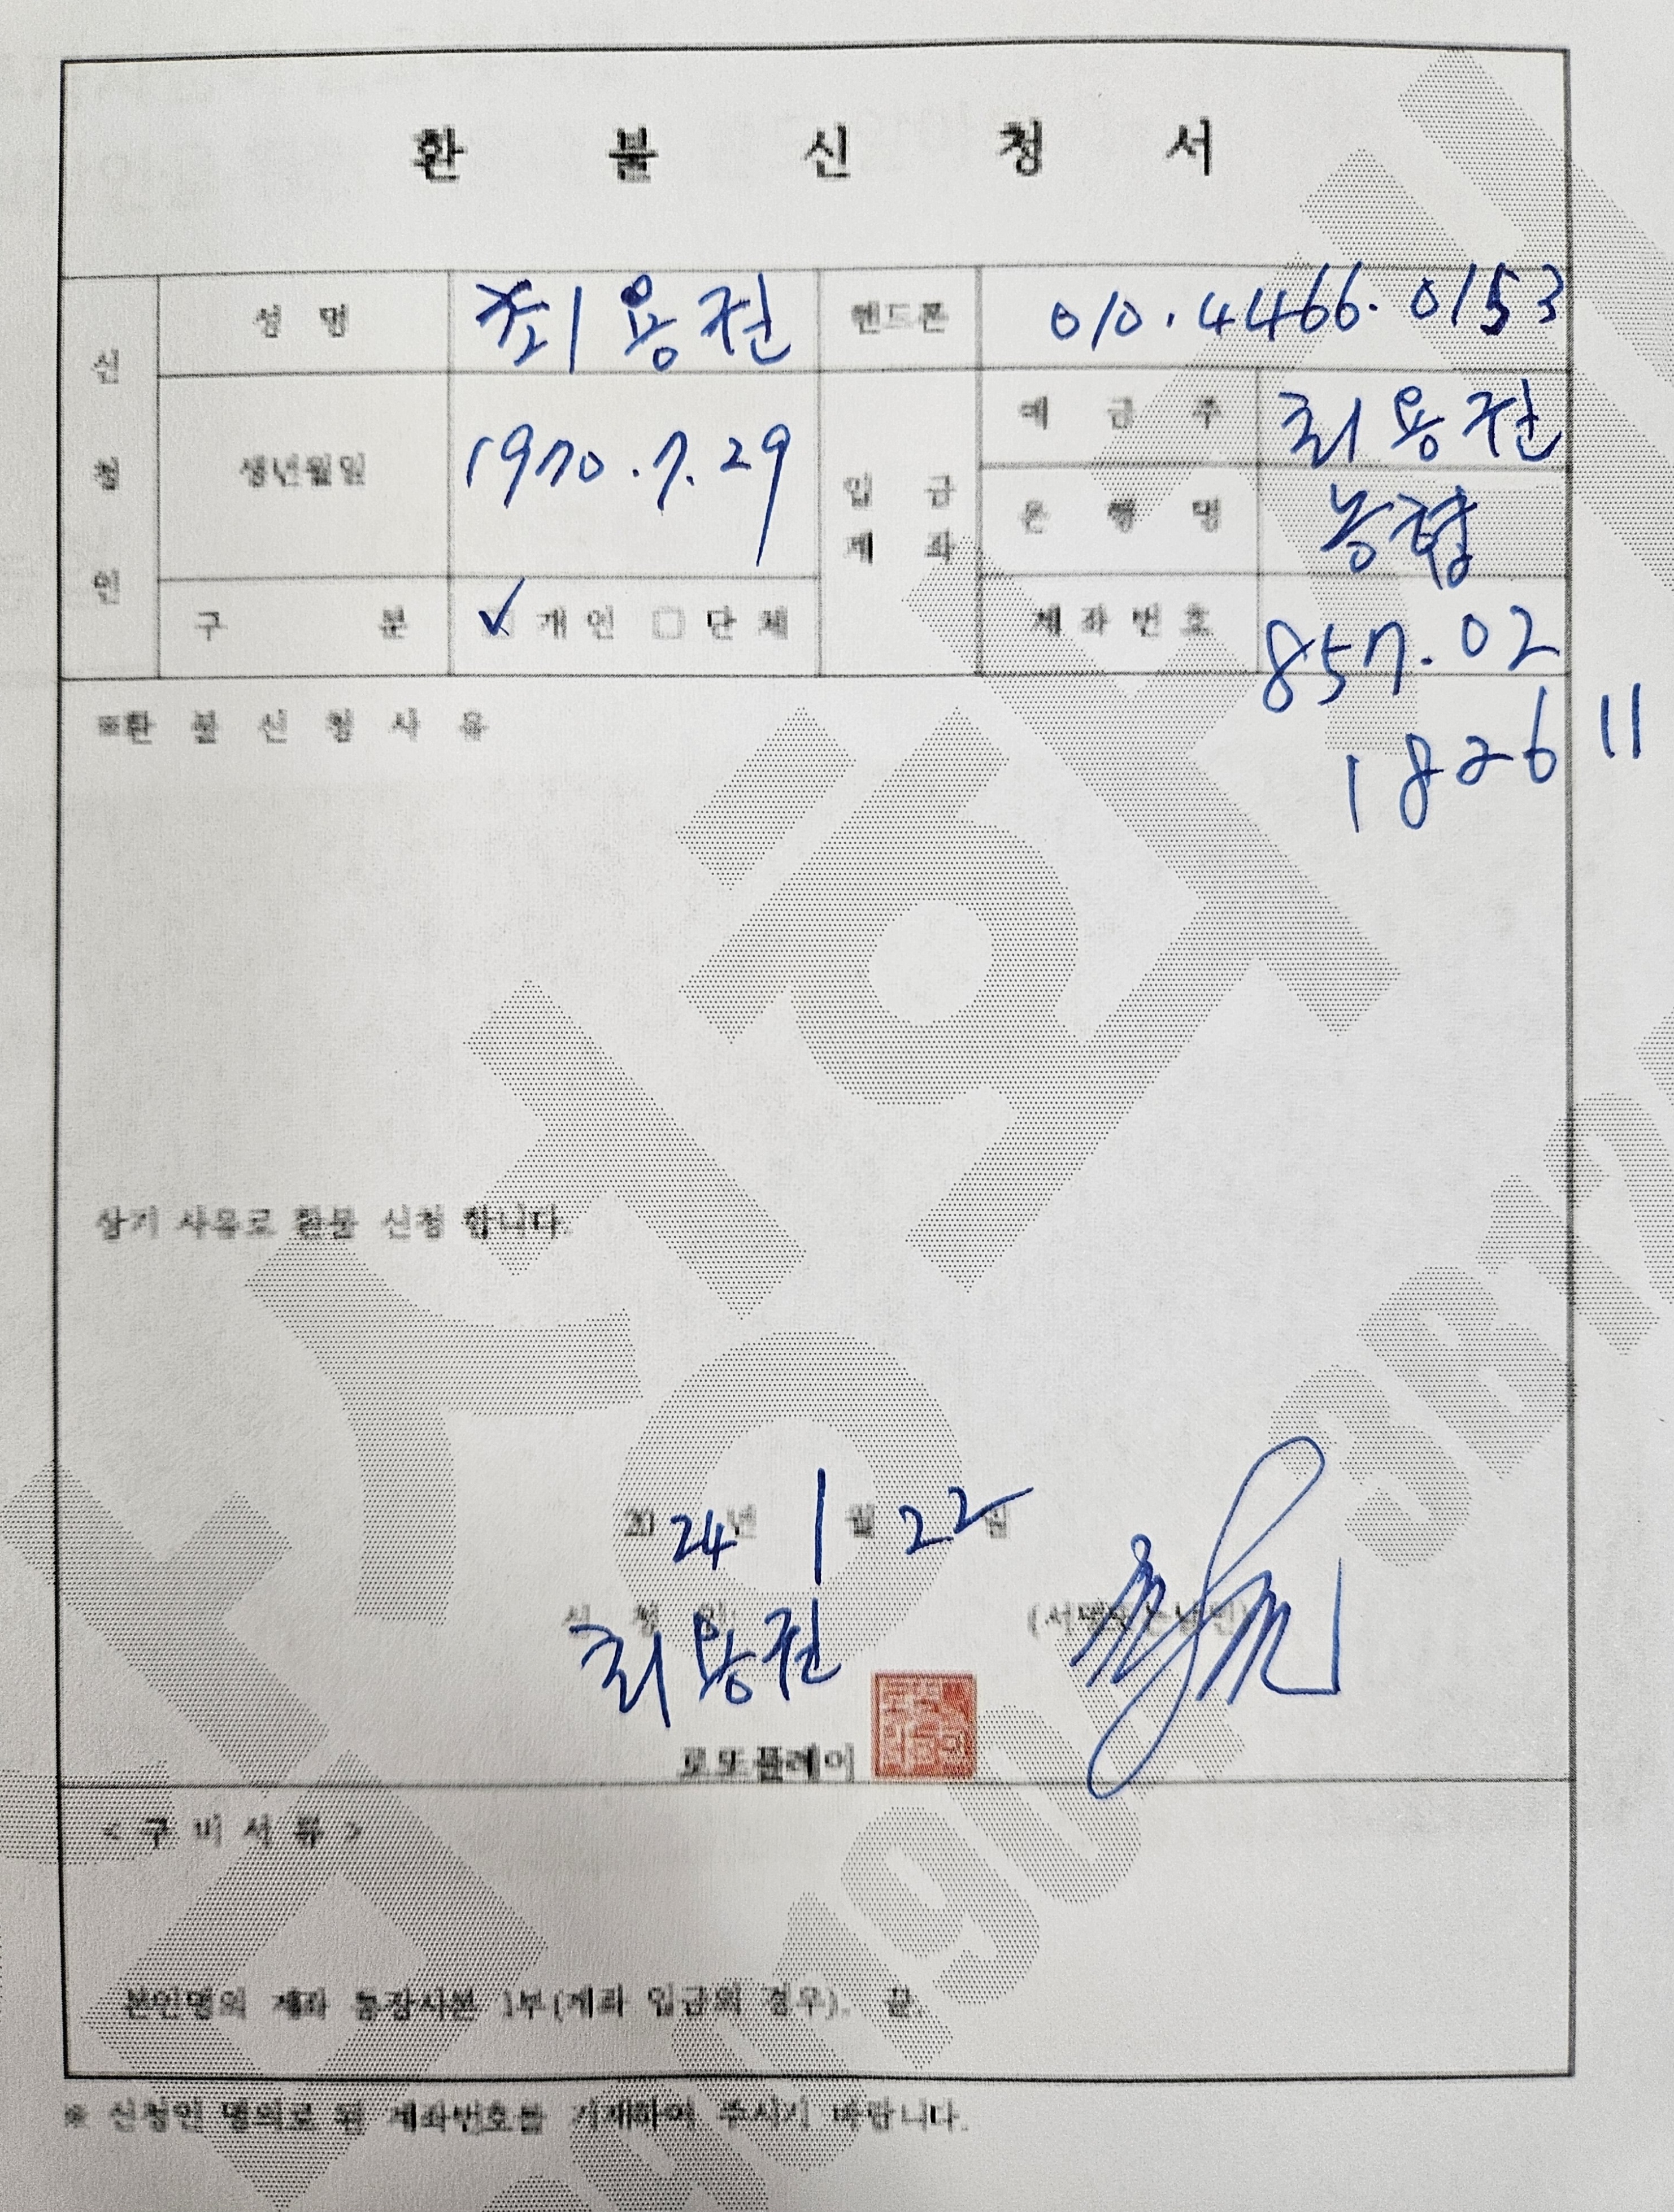 환 불 신 청 서
신 청 인
성 명 최용권 핸드폰 010.4466.0153
생년월일 1970.7.29
입 금 계 좌
예 금 주 최용권
은 행 명 농협
구 분 ✓ 개인 □ 단체
계좌번호 857.02
182611
※환 불 신 청 사 유
상기 사유로 환불 신청 합니다.
2024년 1월 22일
신 청 인:
최용권 (서명또는날인)
로또플레이
< 구 비 서 류 >
본인명의 계좌 통장사본 1부(계좌 입금의 경우). 끝.
※ 신청인 명의로 된 계좌번호를 기재하여 주시기 바랍니다.